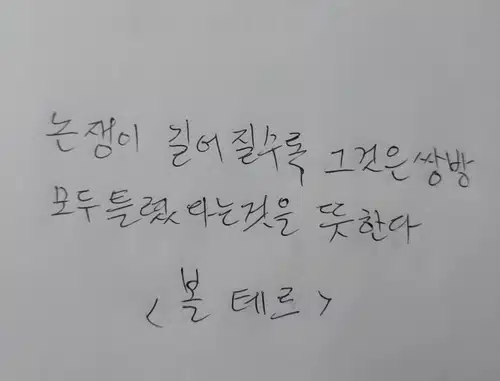 논쟁이 길어질수록 그것은 쌍방
모두 틀렸다는것을 뜻한다
<볼테르>